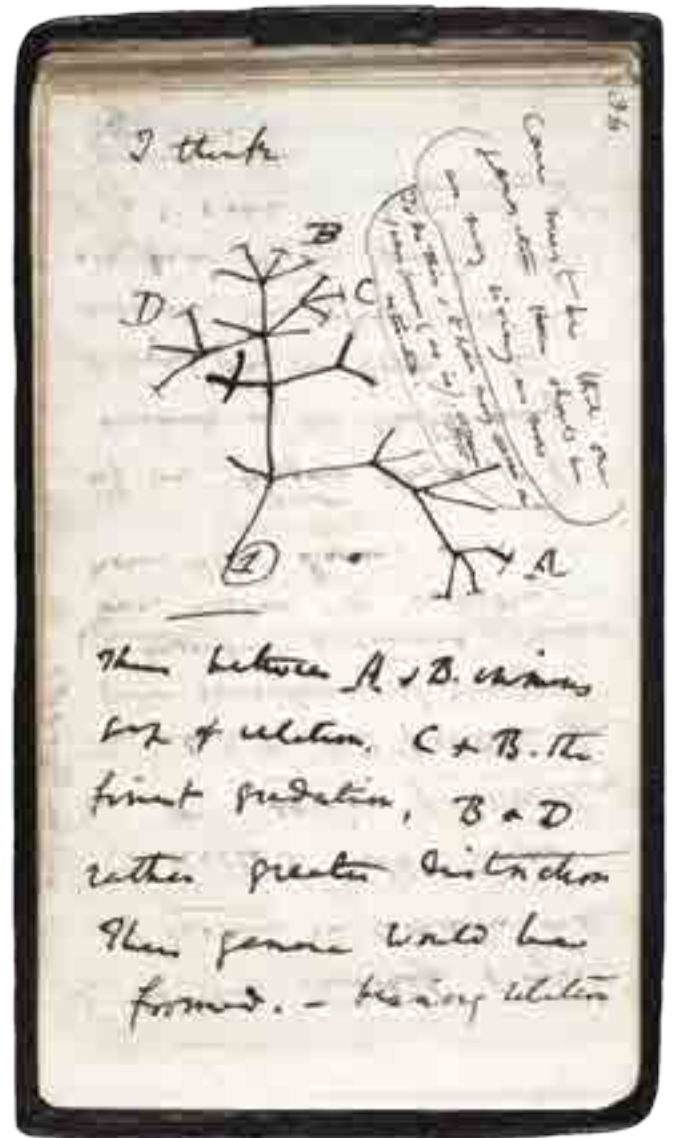 36
I think
Case must be that one
generation then should be
as many living as now
To do this & to have many species in
same genus (as is) requires
extinction.
B
D
C
A
1
Thus between A & B. immense
gap of relation. C & B. the
finest gradation, B & D
rather greater distinction
Thus genera would be
formed. — bearing relation